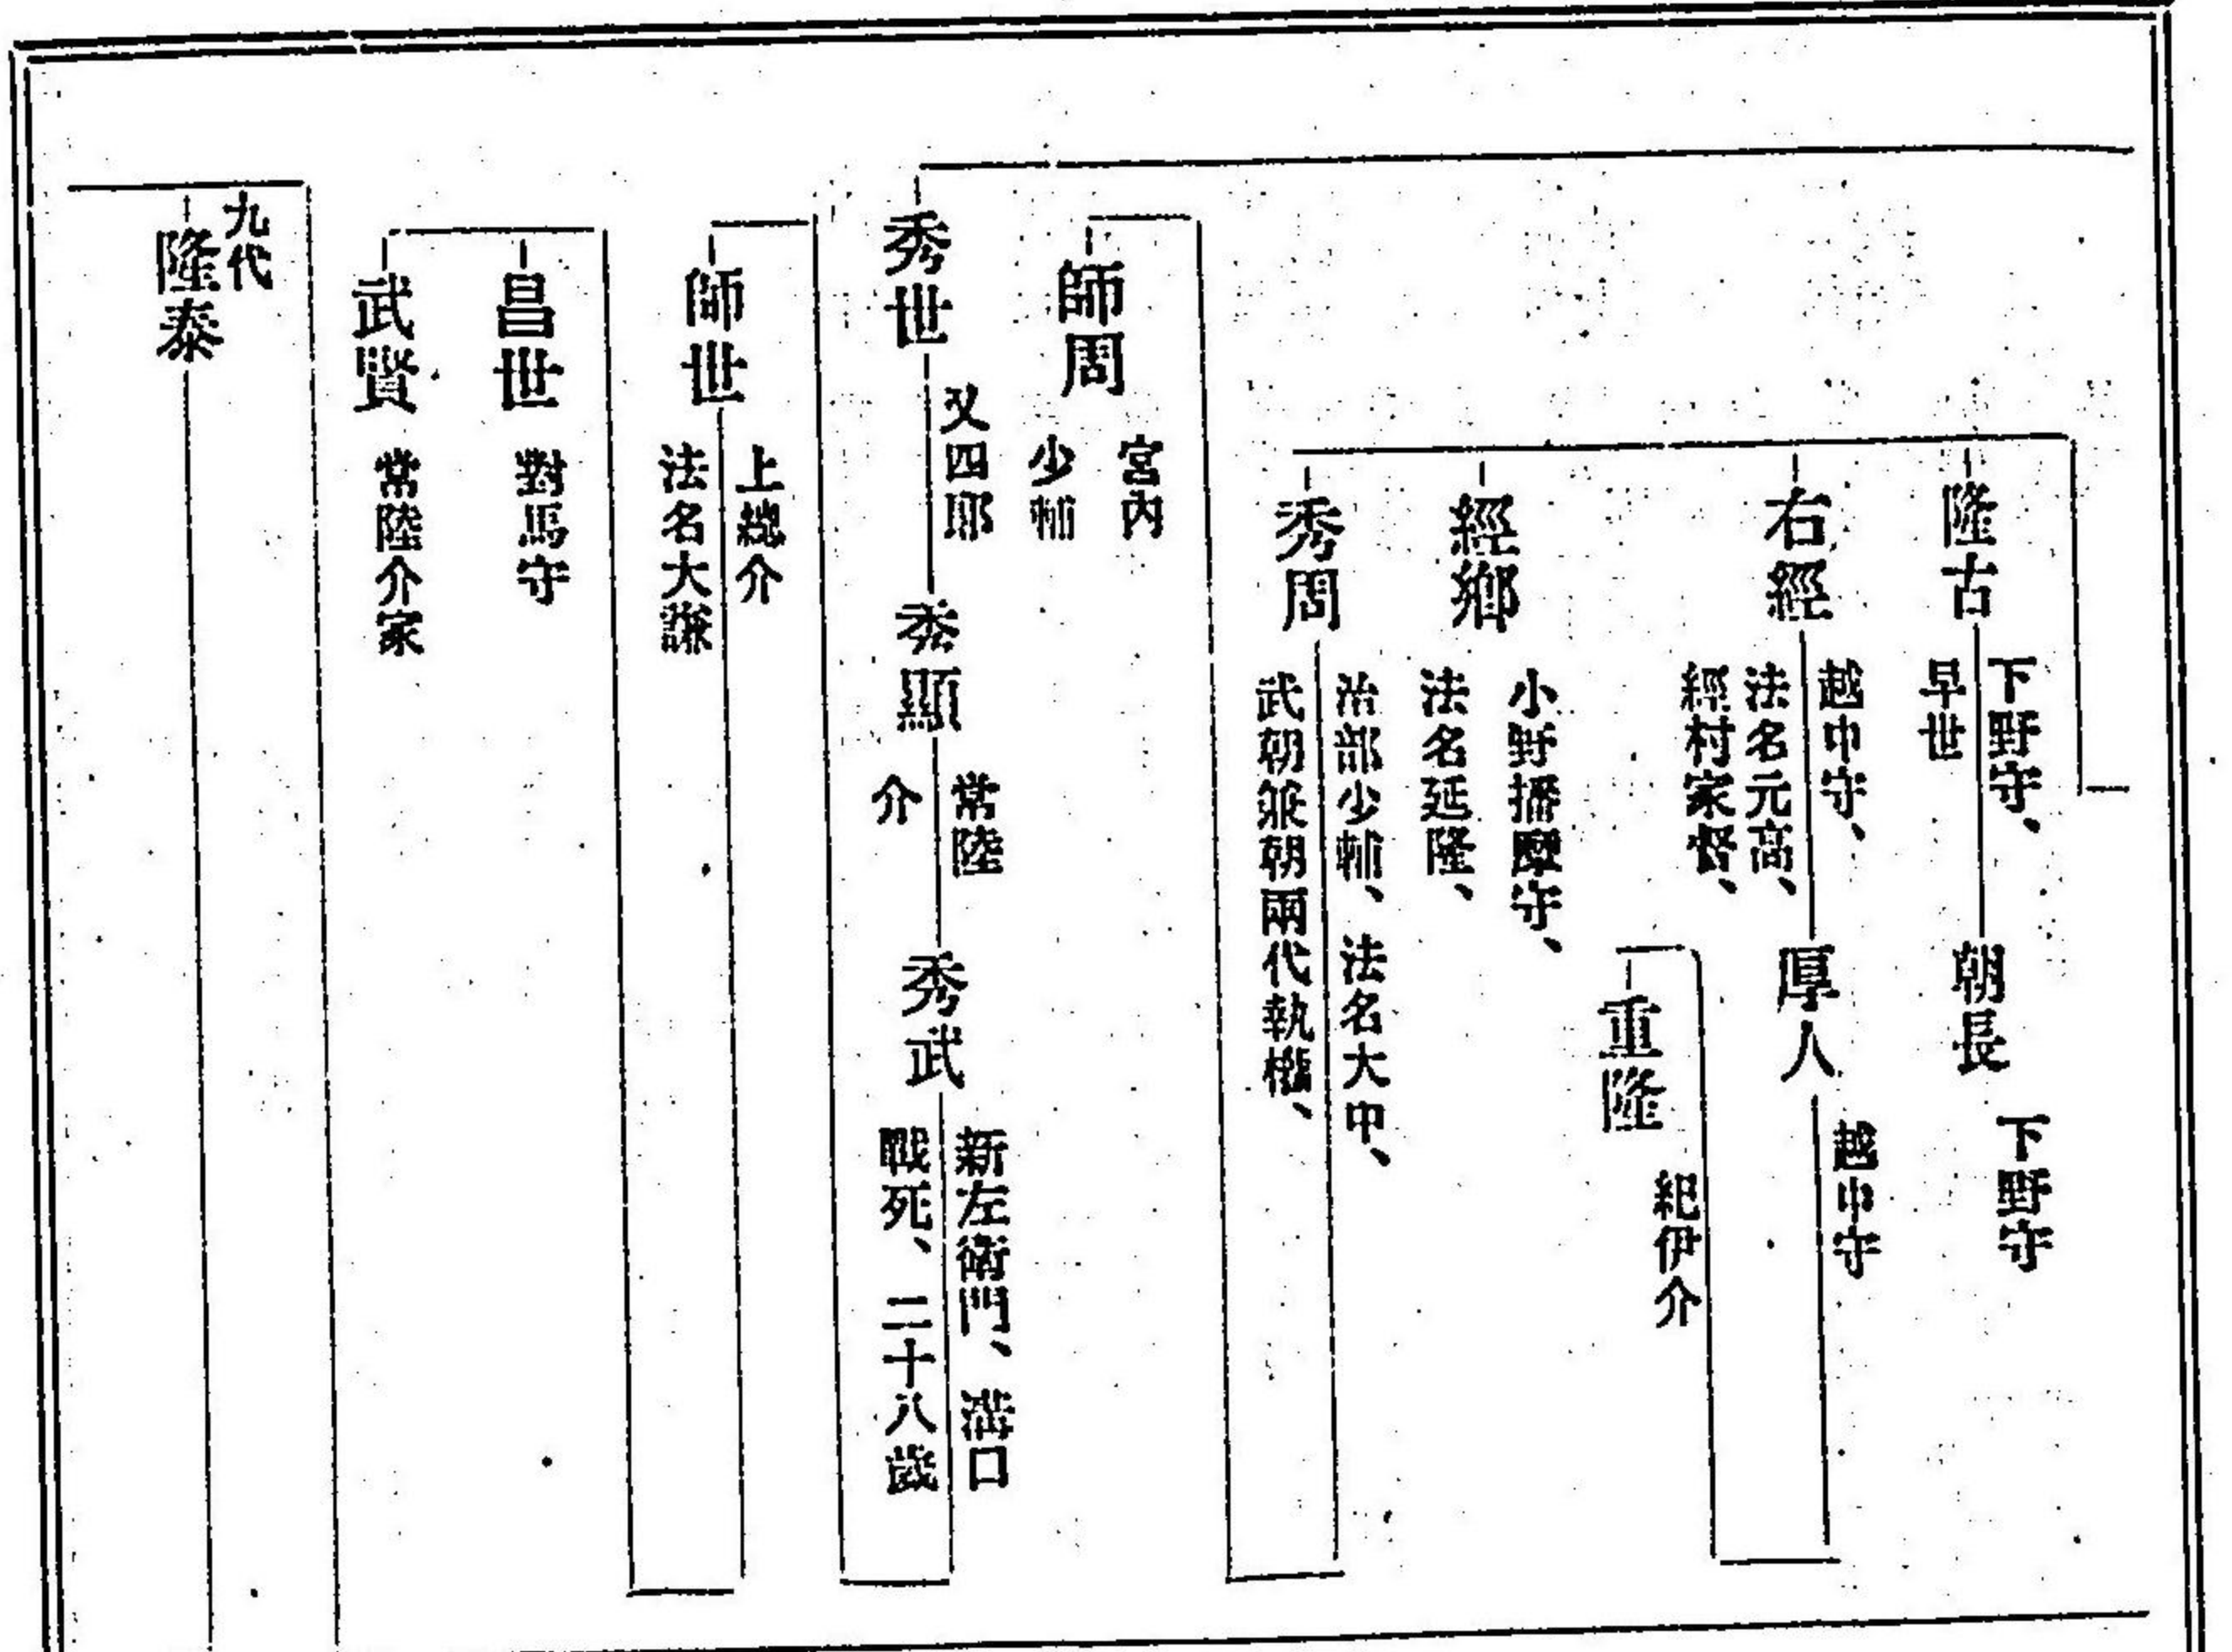 隆古
下野守、
早世
朝長
下野守
右經
越中守、
法名元高、
經村家督、
厚人
越中守
重隆
紀伊介
經鄉
小野播摩守、
法名延隆、
秀周
治部少輔、法名大中、
武朝兼朝兩代執權、
師周
宮內
少輔
秀世
又四郎
秀顯
常陸
介
秀武
新左衛門、溝口
戰死、二十八歲
師世
上總介
法名大謙
昌世
對馬守
武賢
常陸介家
九代
隆泰